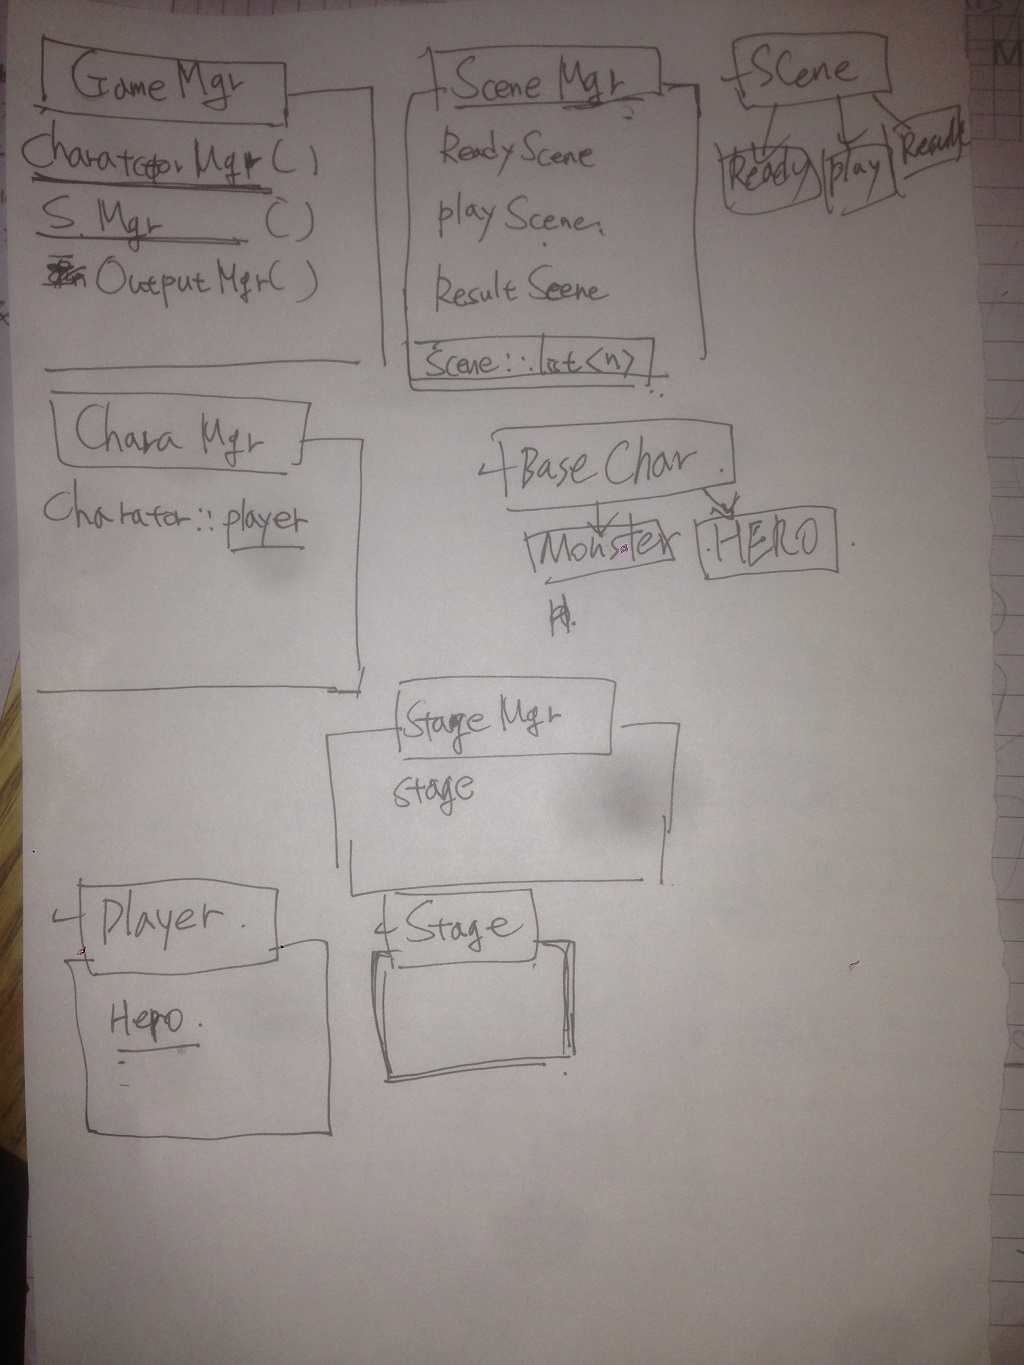 Game Mgr
Mgr ( )
S. Mgr ( )
Output Mgr( )
Scene Mgr
Ready Scene
play Scene
Result Scene
Scene :: list <n>
Scene
Ready
play
Result
Chara Mgr
Charater :: player
Base Char.
Monster
HERO
H.
Stage Mgr
stage
Player.
Hero.
Stage